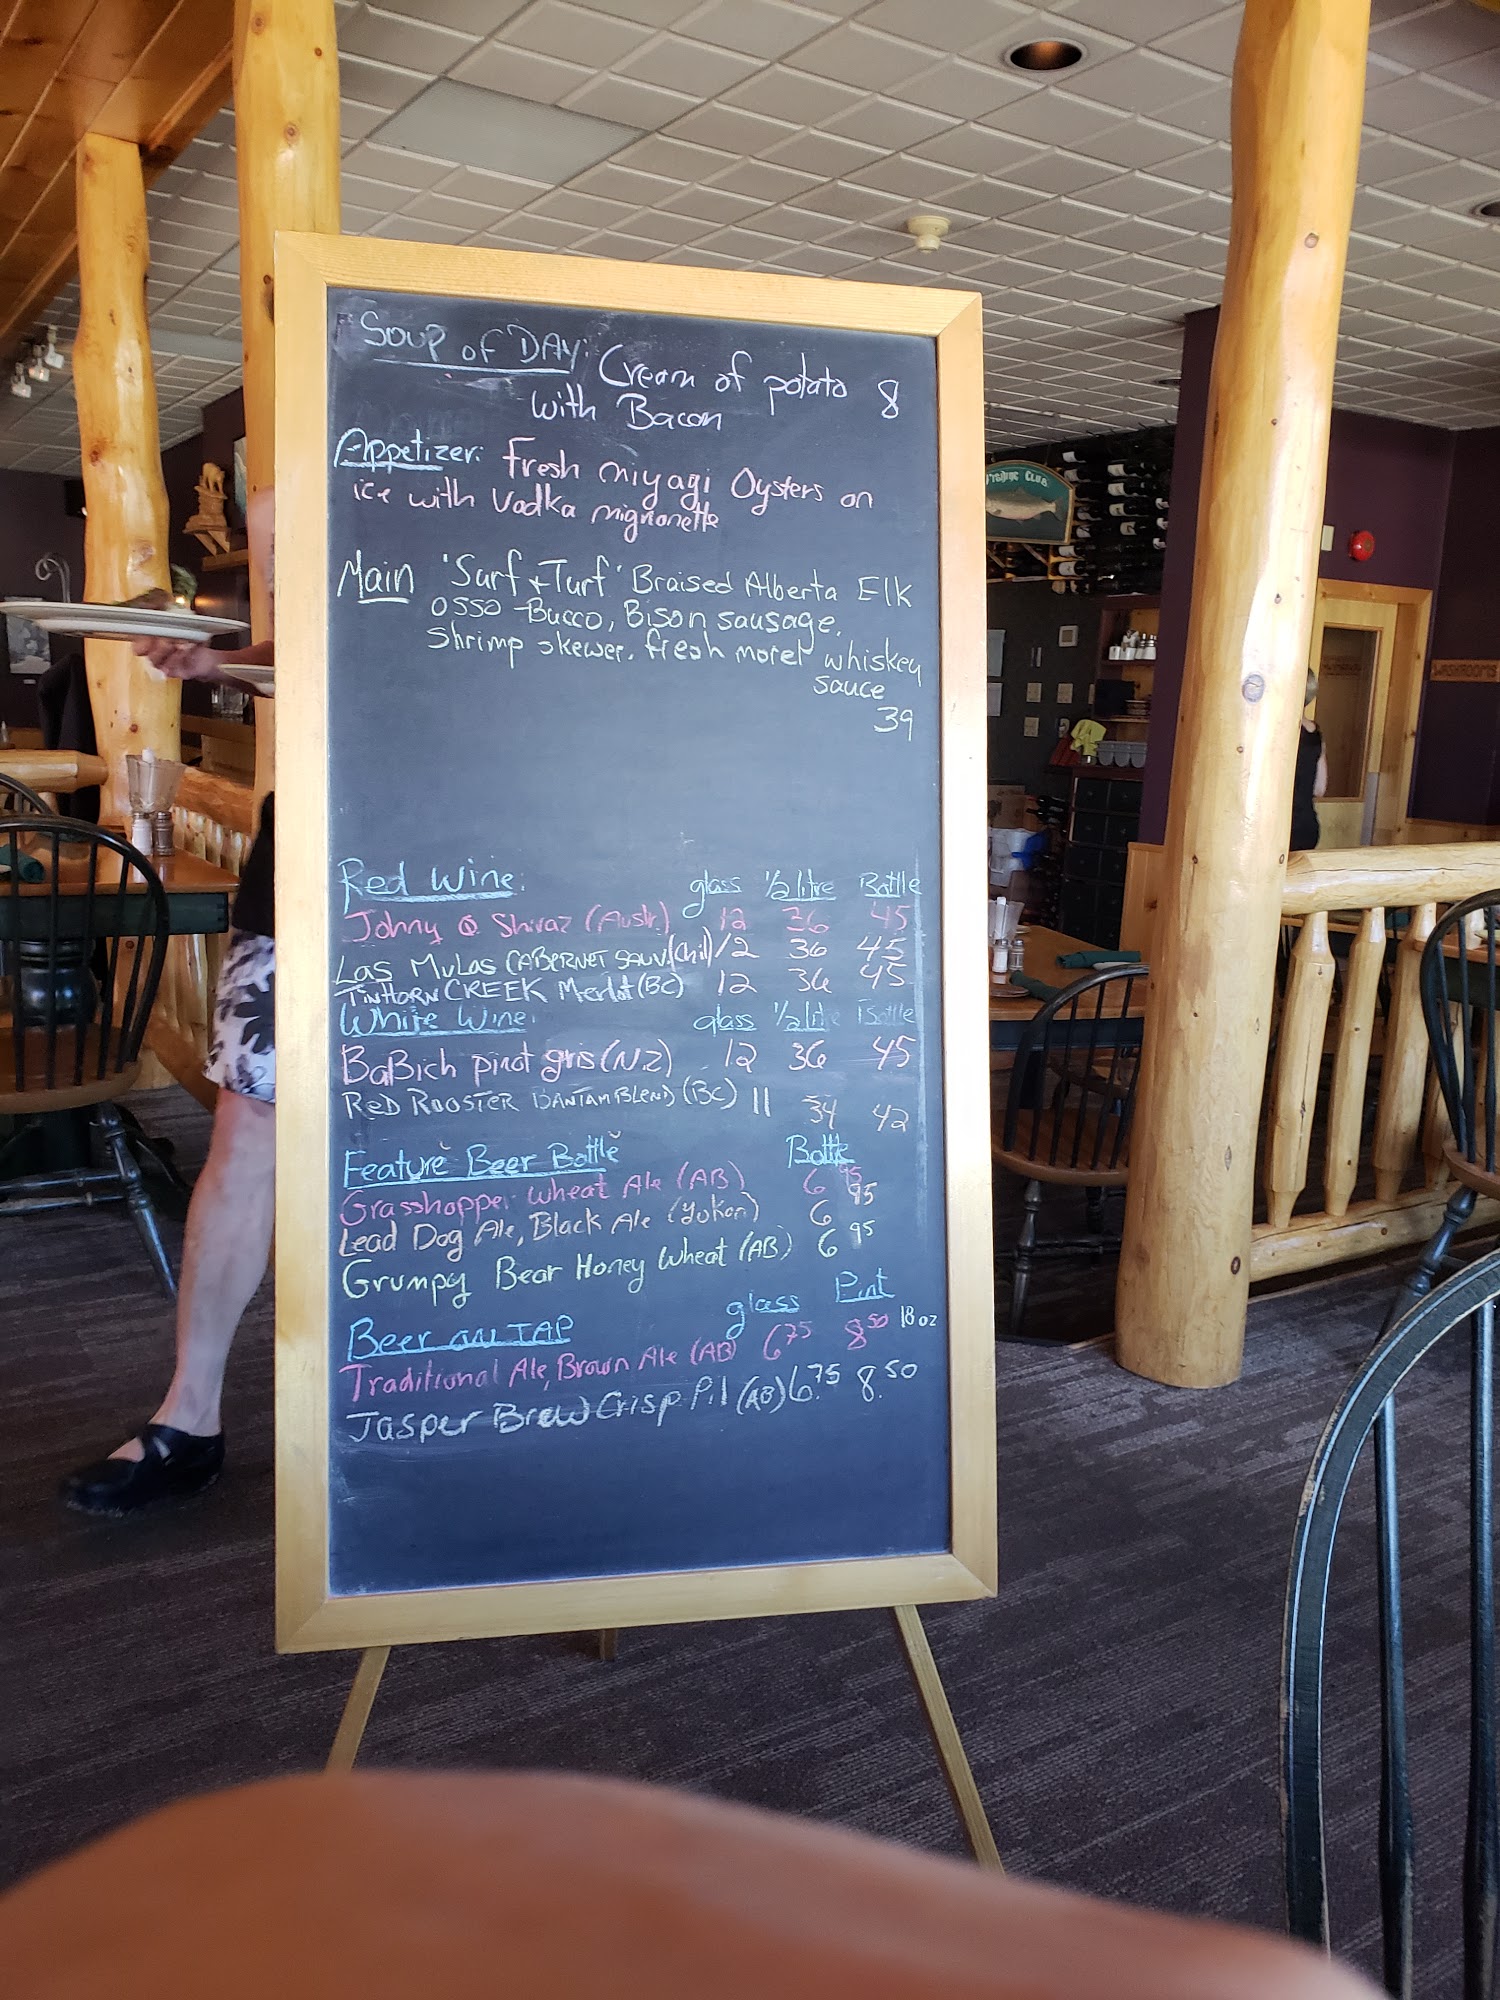 Soup of DAY: Cream of potato 8
with Bacon
Appetizer: Fresh miyagi Oysters on
ice with Vodka mignonette
Main 'Surf + Turf' Braised Alberta Elk
osso-Bucco, Bison sausage,
Shrimp skewer, fresh morel whiskey
sauce
39
Red Wine: glass 1/2 litre Bottle
Johny Q Shiraz (Austr.) 12 36 45
Las Mulas CABERNET SAUV. (Chil) 12 36 45
TINHORN CREEK Merlot (BC) 12 36 45
White Wine: glass 1/2 lite Bottle
BaBich pinot gris (N.Z) 12 36 45
RED ROOSTER BANTAM BLEND (BC) 11 34 42
Feature Beer Bottle Bottle
Grasshopper wheat Ale (AB) 6 95
Lead Dog Ale, Black Ale (Yukon) 6 95
Grumpy Bear Honey Wheat (AB) 6 95
Beer on TAP glass Pint
Traditional Ale, Brown Ale (AB) 6 75 8 50 18 oz
Jasper Brew Crisp Pil (AB) 6.75 8.50
CLUB
WASHROOMS